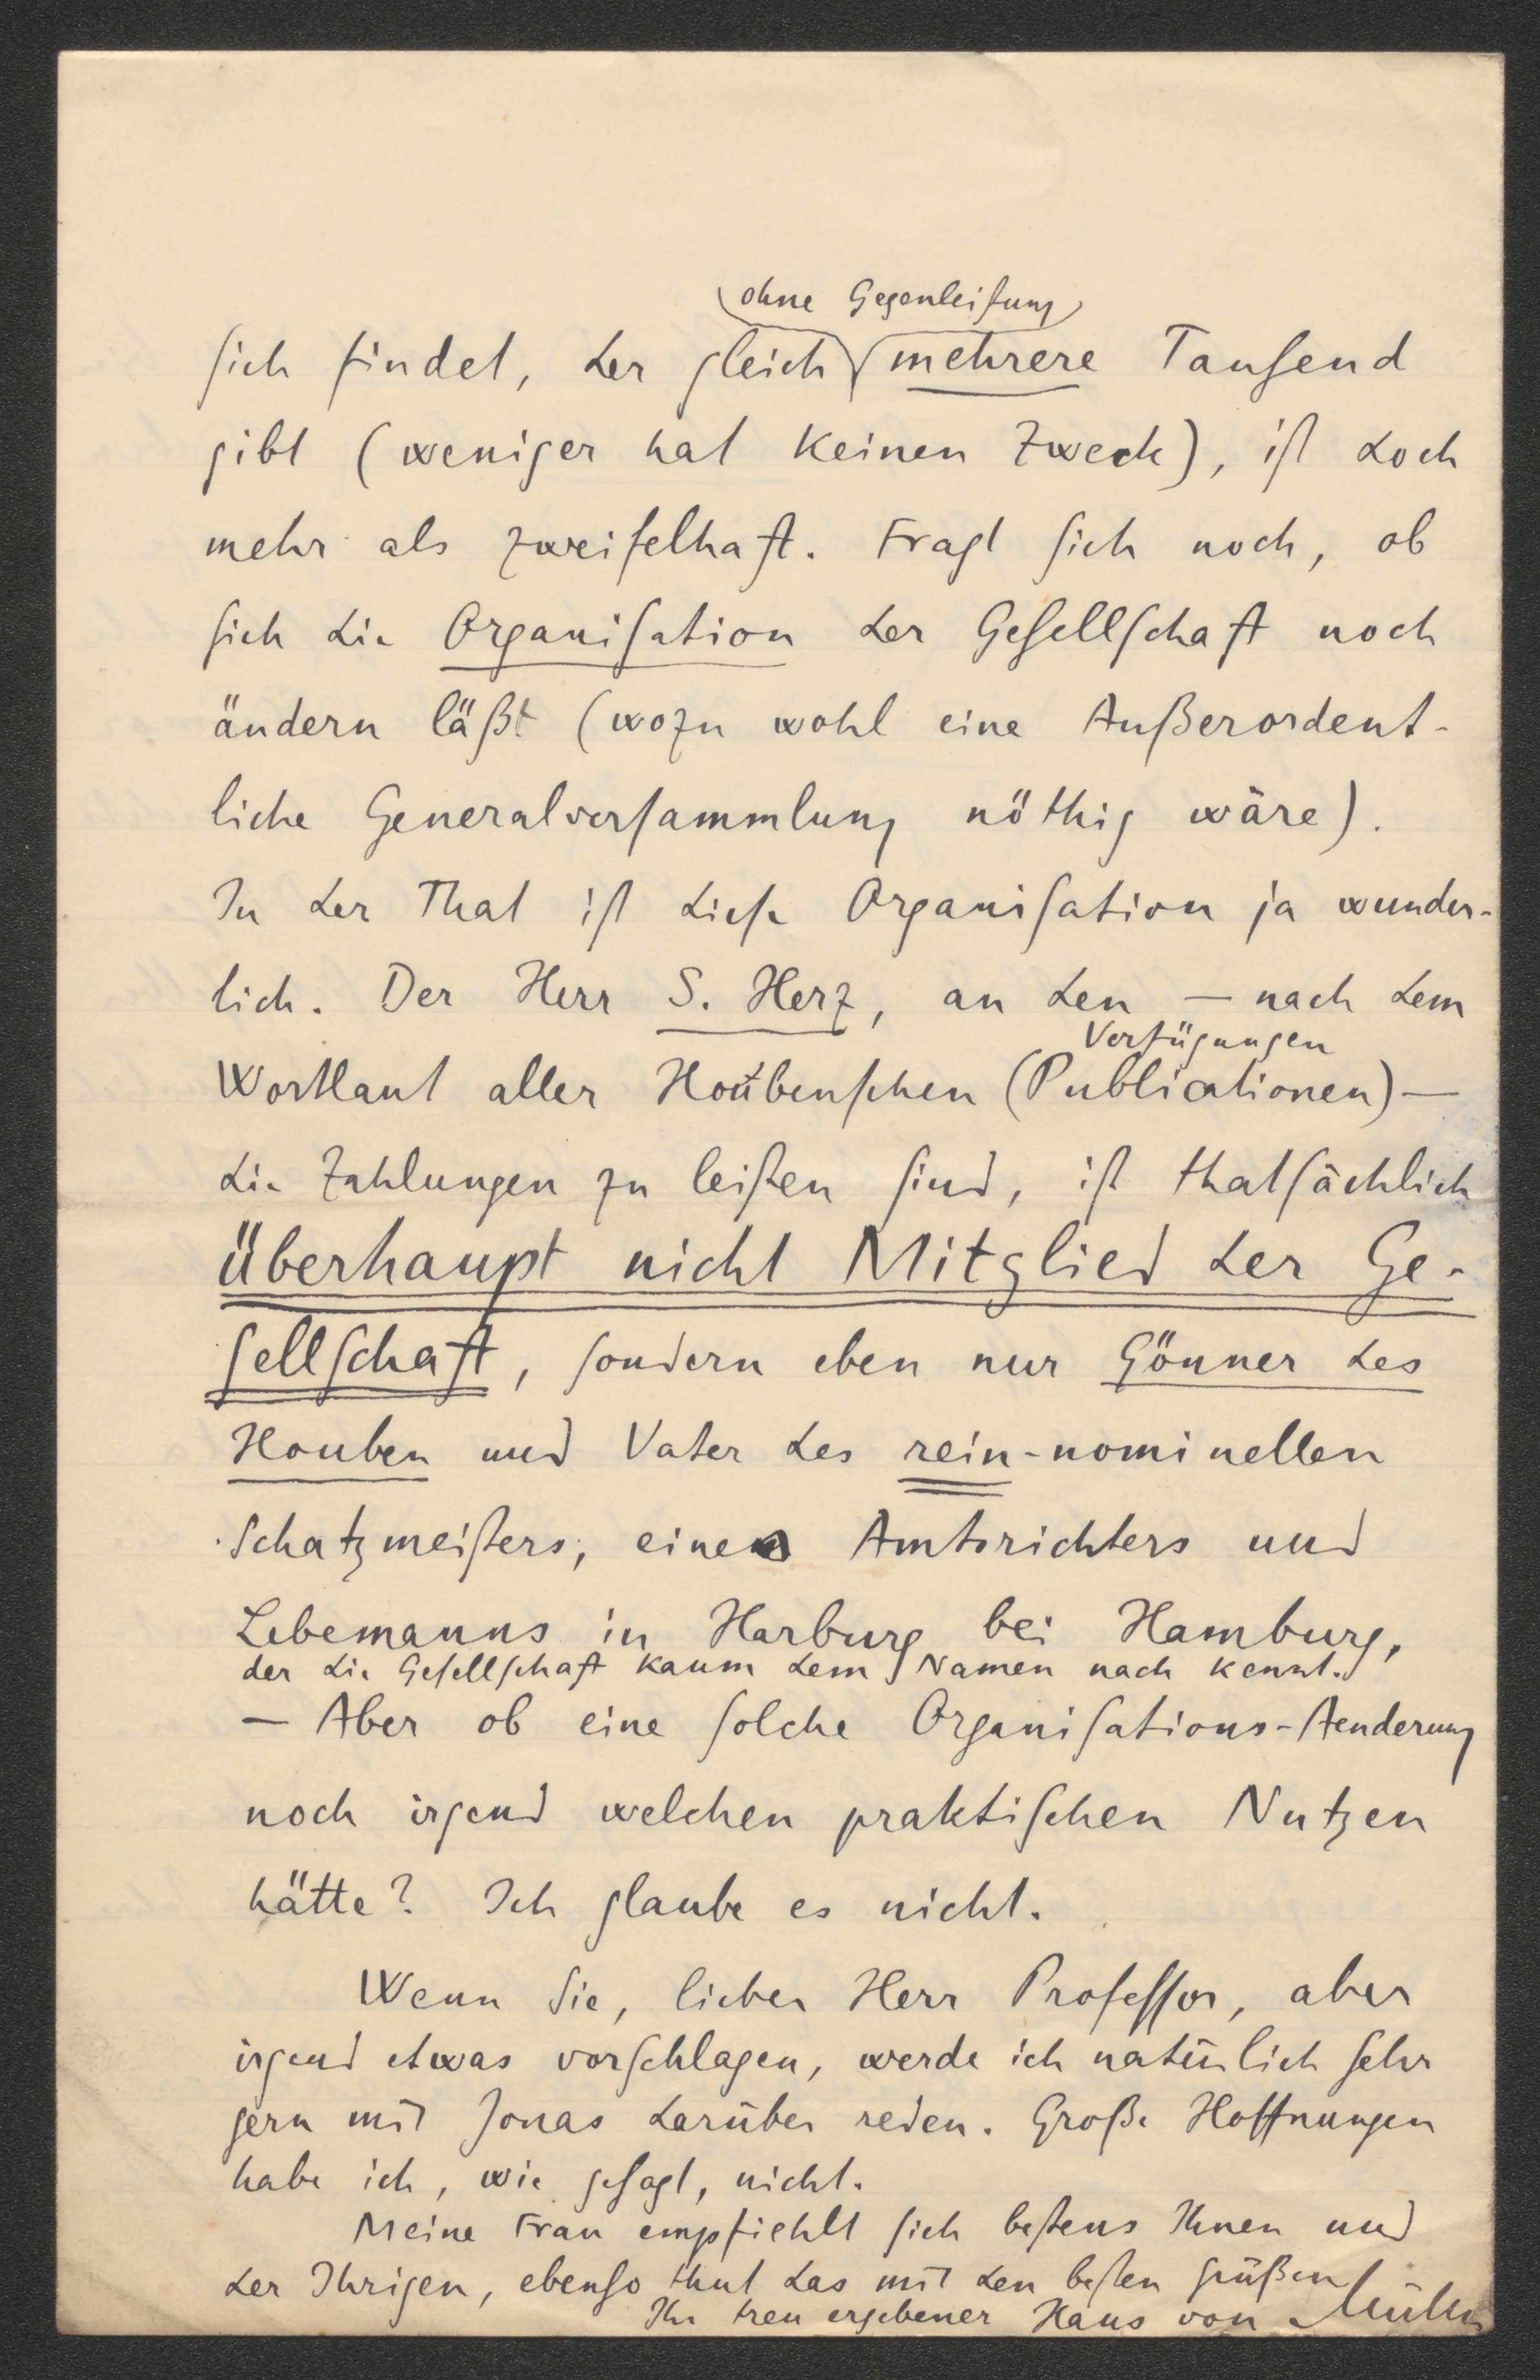 ohne Gegenleistung
sich findet, der gleich mehrere Tausend
gibt (weniger hat keinen Zweck), ist doch
mehr als zweifelhaft. Fragt sich noch, ob
sich die Organisation der Gesellschaft noch
ändern läßt (wozu wohl eine Außerordent-
liche Generalversammlung nöthig wäre).
In der That ist diese Organisation ja wunder-
lich. Der Herr S. Herz, an den — nach dem
Verfügungen
Wortlaut aller Houbenschen (Publicationen) —
die Zahlungen zu leisten sind, ist thatsächlich
überhaupt nicht Mitglied der Ge-
sellschaft, sondern eben nur Gönner des
Houben und Vater des rein-nominellen
Schatzmeisters, eines Amtsrichters und
Lebemanns in Harburg bei Hamburg,
der die Gesellschaft kaum dem Namen nach kennt.
— Aber ob eine solche Organisations-Aenderung
noch irgend welchen praktischen Nutzen
hätte? Ich glaube es nicht.
Wenn Sie, lieber Herr Professor, aber
irgend etwas vorschlagen, werde ich natürlich sehr
gern mit Jonas darüber reden. Große Hoffnungen
habe ich, wie gesagt, nicht.
Meine Frau empfiehlt sich bestens Ihnen und
der Ihrigen, ebenso thut das mit den besten Grüßen
Ihr treu ergebener Hans von Müller